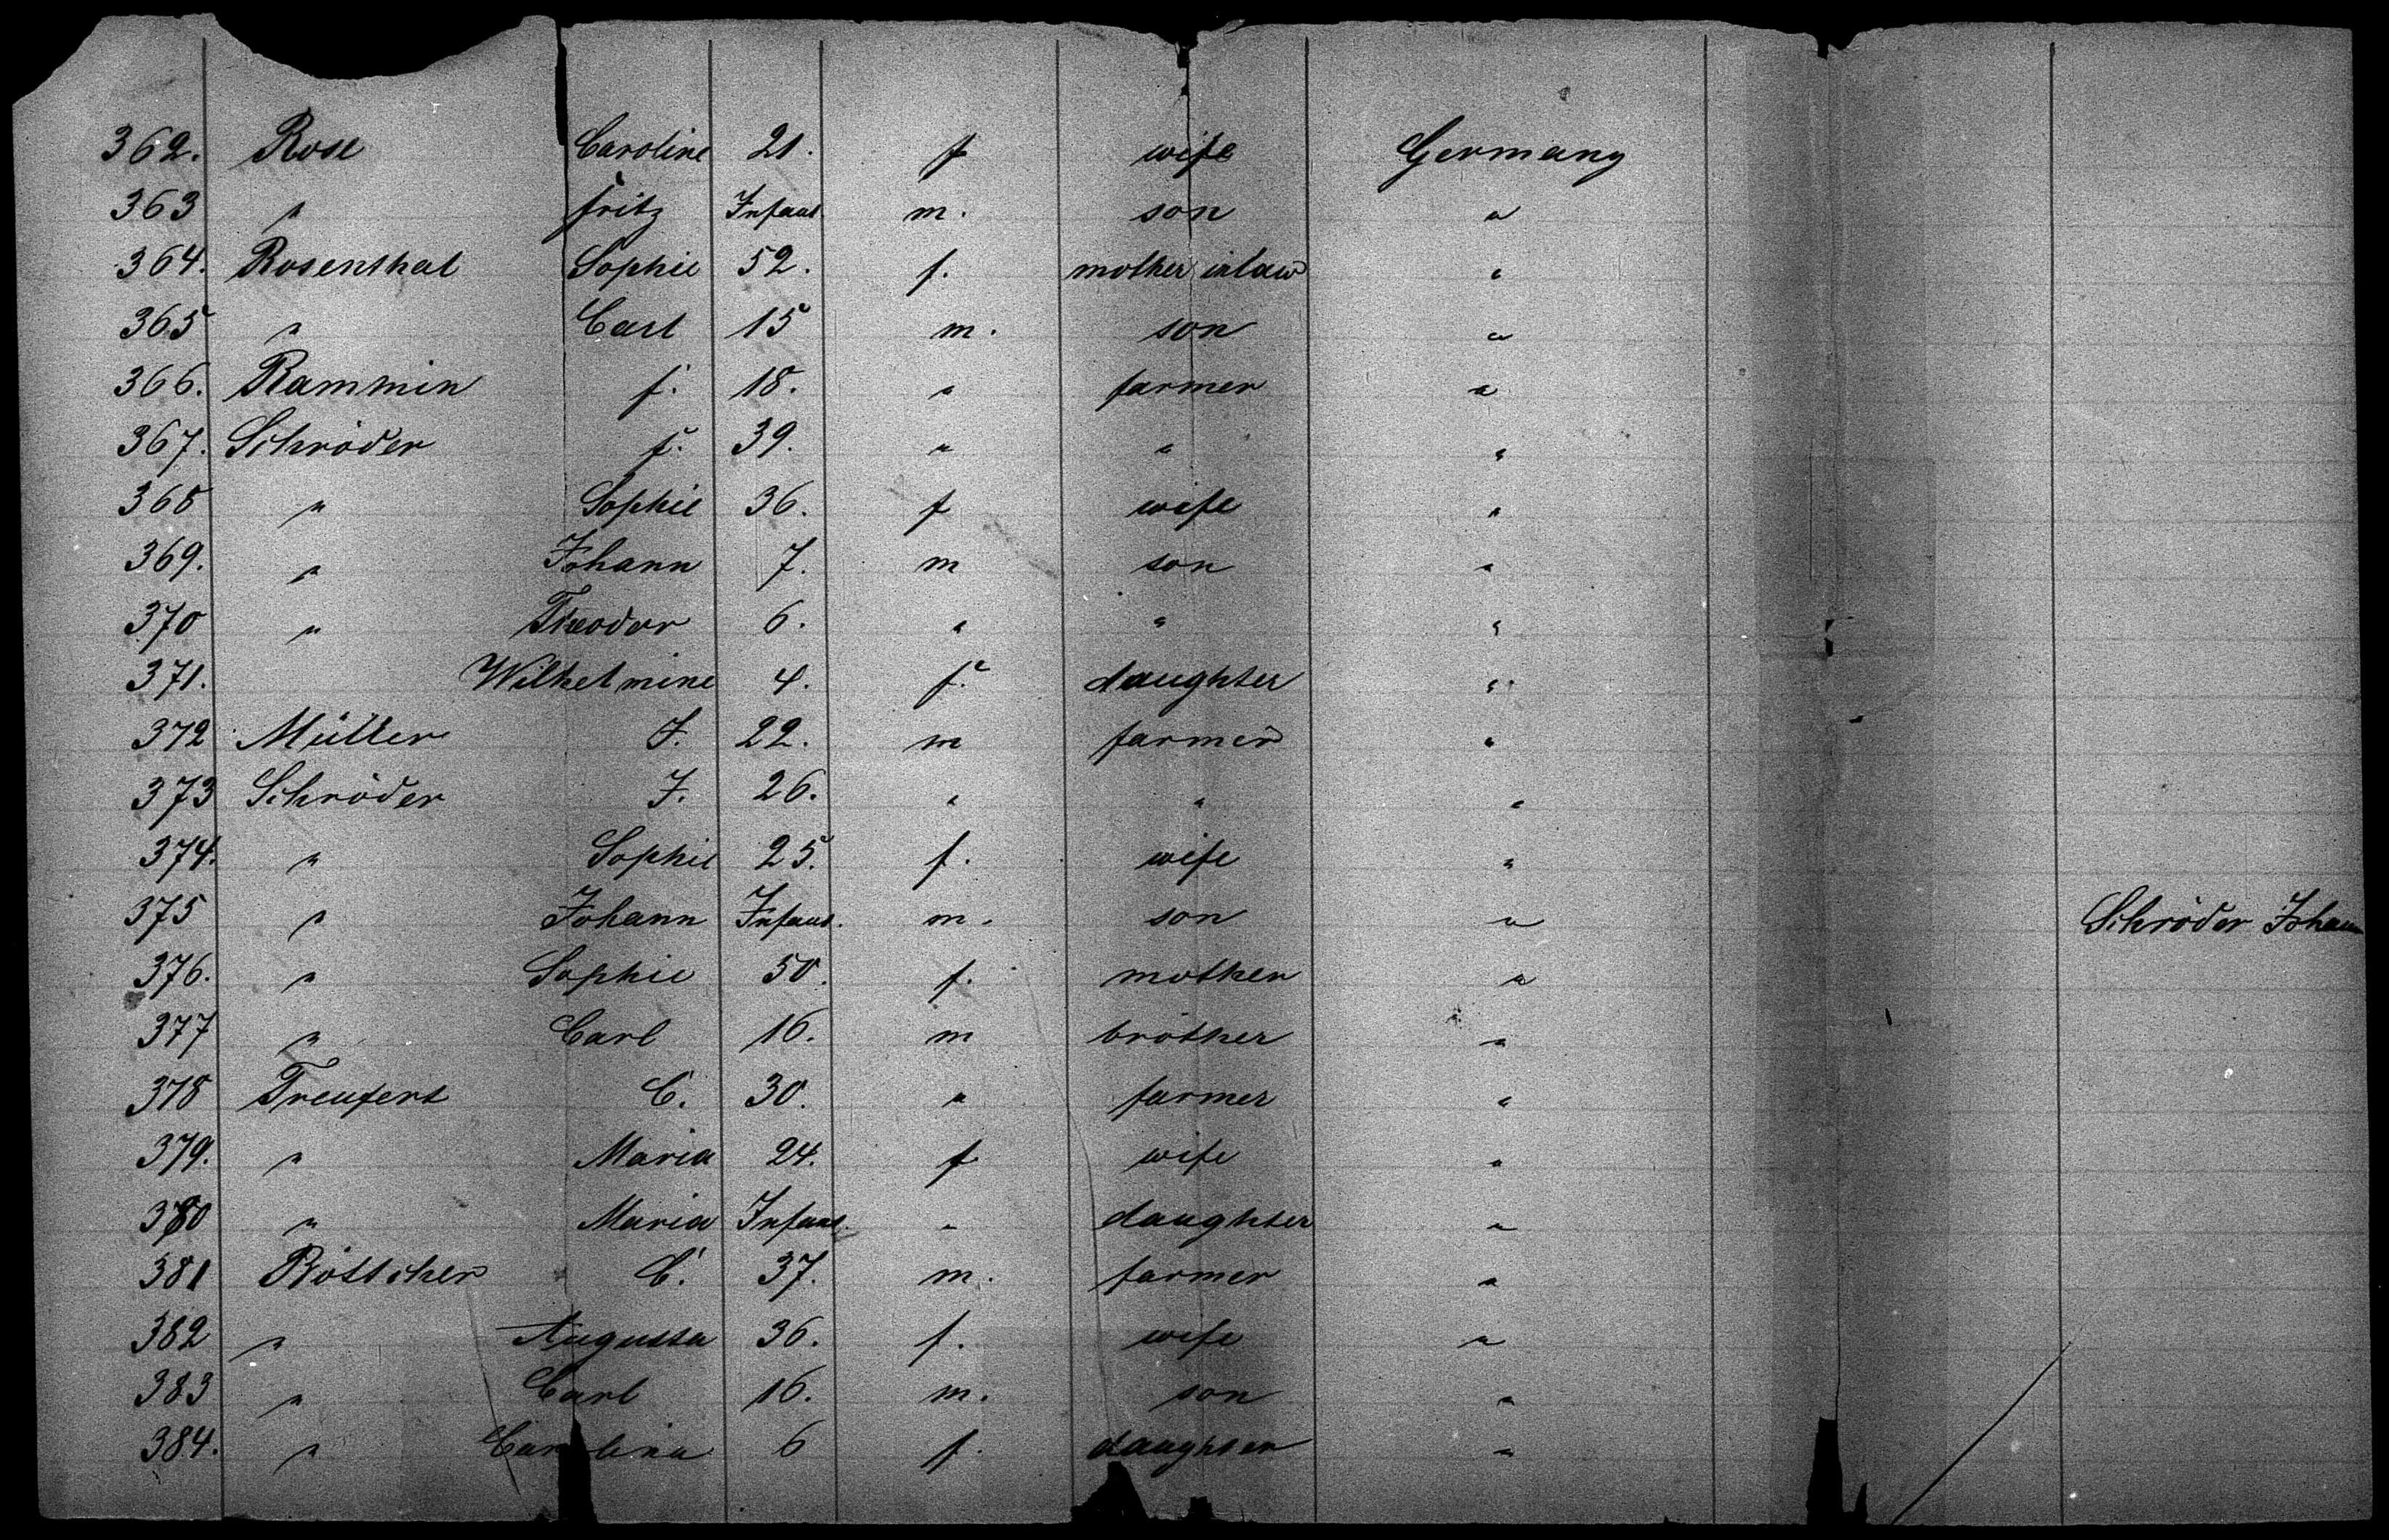 362. Rose Caroline 21. f wife Germany
363 " Fritz Infant m. son "
364. Rosenthal Sophie 52. f. mother inlaw "
365 " Carl 15 m. son "
366. Rammin f. 18. " farmer "
367. Schröder f. 39. " " "
368 " Sophie 36. f wife "
369. " Johann 7. m son "
370 " Theodor 6. " " "
371. Wilhelmine 4. f. daughter "
372 Müller J. 22. m farmer "
373 Schröder J. 26. " " "
374. " Sophie 25. f. wife "
375 " Johann Infant. m. son " Schröder Johann
376. " Sophie 50. f. mother "
377 " Carl 16. m brother "
378 Treufert C. 30. " farmer "
379. " Maria 24. f wife "
380 " Maria Infant. " daughter "
381 Böttcher C. 37. m. farmer "
382 " Augusta 36. f. wife "
383 " Carl 16. m. son "
384. " Carolina 6 f. daughter "